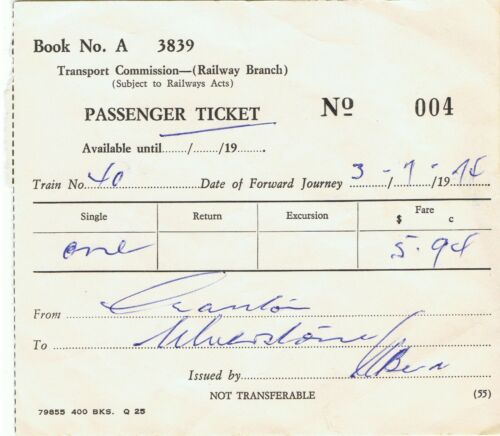 Book No. A 3839
Transport Commission—(Railway Branch)
(Subject to Railways Acts)
PASSENGER TICKET No 004
Available until....../....../19.......
Train No. 40 Date of Forward Journey 3-/ 7-/19 74
Single Return Excursion Fare
$ c
one 5.94
From
To Ulverstone
Issued by
NOT TRANSFERABLE (55)
79855 400 BKS. Q 25